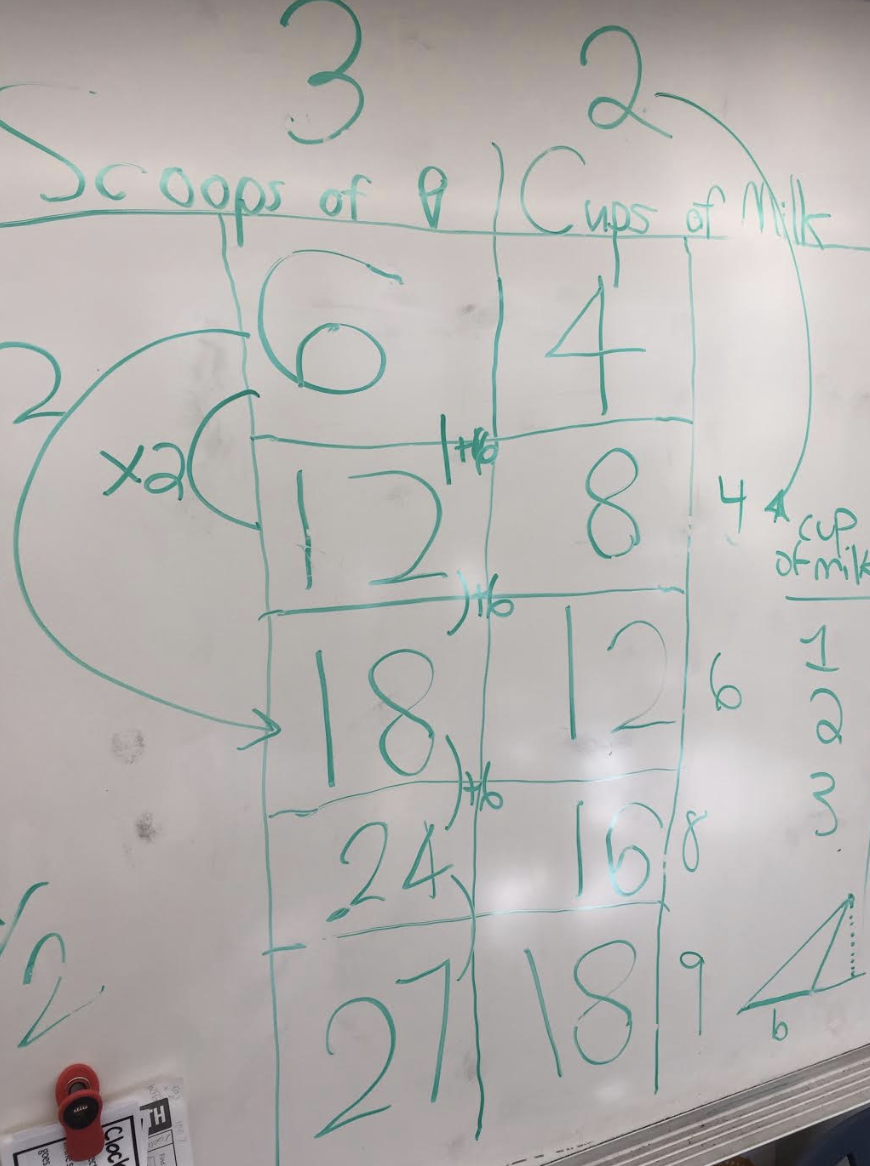 3 2
Scoops of Cups of Milk
6 4
2
x2
+6
12 8 4
cup
of milk
+6
1
18 12 6
2
+6
3
24 16 8
2
27 18 9
b
Clock